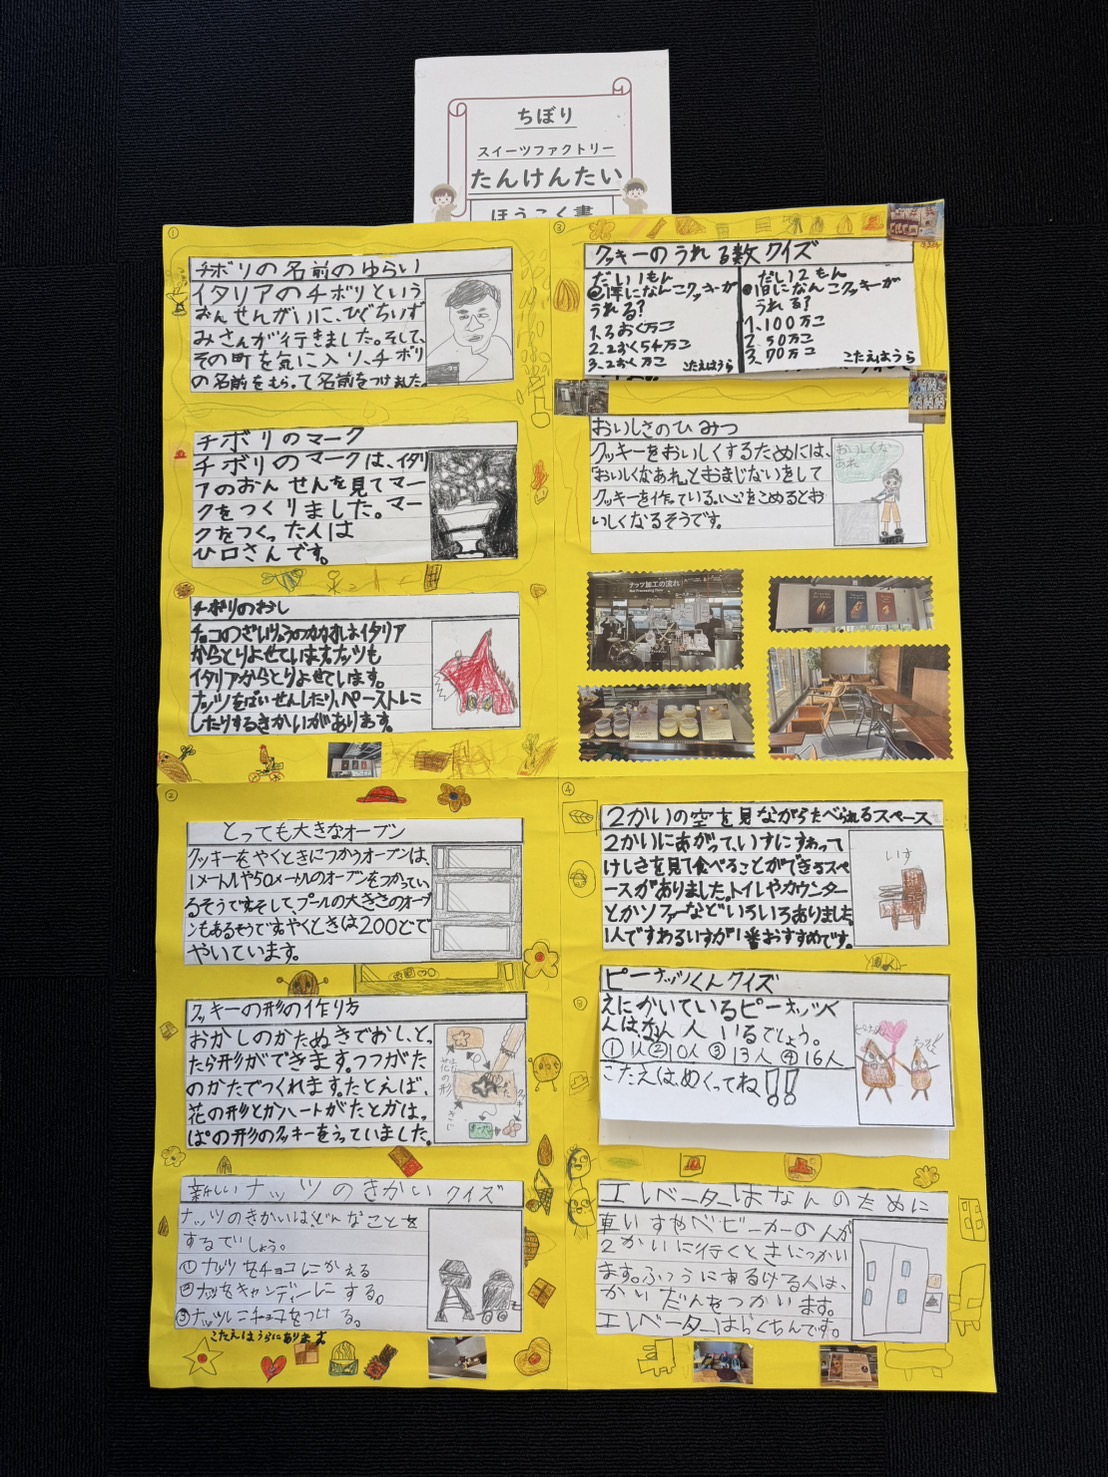 ちぼり
スイーツファクトリー
たんけんたい
ほうこく書
①
チボリの名前のゆらい
イタリアのチボリという
おんせんがいに、ひぐちいず
みさんが行きました。そして、
その町を気に入り、チボリ
の名前をもらって名前をつけました。
チボリのマーク
チボリのマークは、イタリ
アのおんせんを見てマー
クをつくりました。マー
クをつくった人は
ひ口さんです。
チボリのおし
チョコのざいりょうのカカオはイタリア
からとりよせています。ナッツも
イタリアからとりよせています。
ナッツをばいせんしたり、ペーストに
したりするきかいがあります。
②
とっても大きなオーブン
クッキーをやくときにつかうオーブンは、
1メートルや50メートルのオーブンをつかってい
るそうです。そして、プールの大きさのオーブ
ンもあるそうです。やくときは200どで
やいています。
クッキーの形の作り方
おかしのかたぬきでおしと
たら形ができます。つつがた
のかたでつくれます。たとえば、
花の形とかハートがたとかはっ
ぱの形のクッキーをうっていました。
花の形
新しいナッツのきかいクイズ
ナッツのきかいはどんなことを
するでしょう。
①ナッツをチョコにかえる
②ナッツをキャンディーにする。
③ナッツにチョコをつける。
こたえはうらにあります
③
クッキーのうれる数クイズ
だい1もん
●1年になんこクッキーが
うれる?
1.3おく万こ
2.2おく54万こ
3.2おく万こ
こたえはうら
だい2もん
●1日になんこクッキーが
うれる?
1.100万こ
2.50万こ
3.70万こ
こたえはうら
おいしさのひみつ
クッキーをおいしくするためには、
「おいしくなあれ」とおまじないをして
クッキーを作っている。心をこめるとお
いしくなるそうです。
おいしくな
あれ
ナッツ加工の流れ
Nut Processing Flow
④
2かいの空を見ながらたべられるスペース
2かいにあがって、いすにすわって
けしきを見て食べることができるスペ
ースがありました。トイレやカウンター
とかソファーなどいろいろありました。
1人ですわるいすが1番おすすめです。
いす
ピーナッツくんクイズ
えにかいているピーナッツく
んはなん人いるでしょう。
①1人②10人③13人④16人
こたえは、めくってね!!
エレベーターはなんのために
車いすやベビーカーの人が
2かいに行くときにつかい
ます。ふつうにあるける人は、
かいだんをつかいます。
エレベーターはらくちんです。